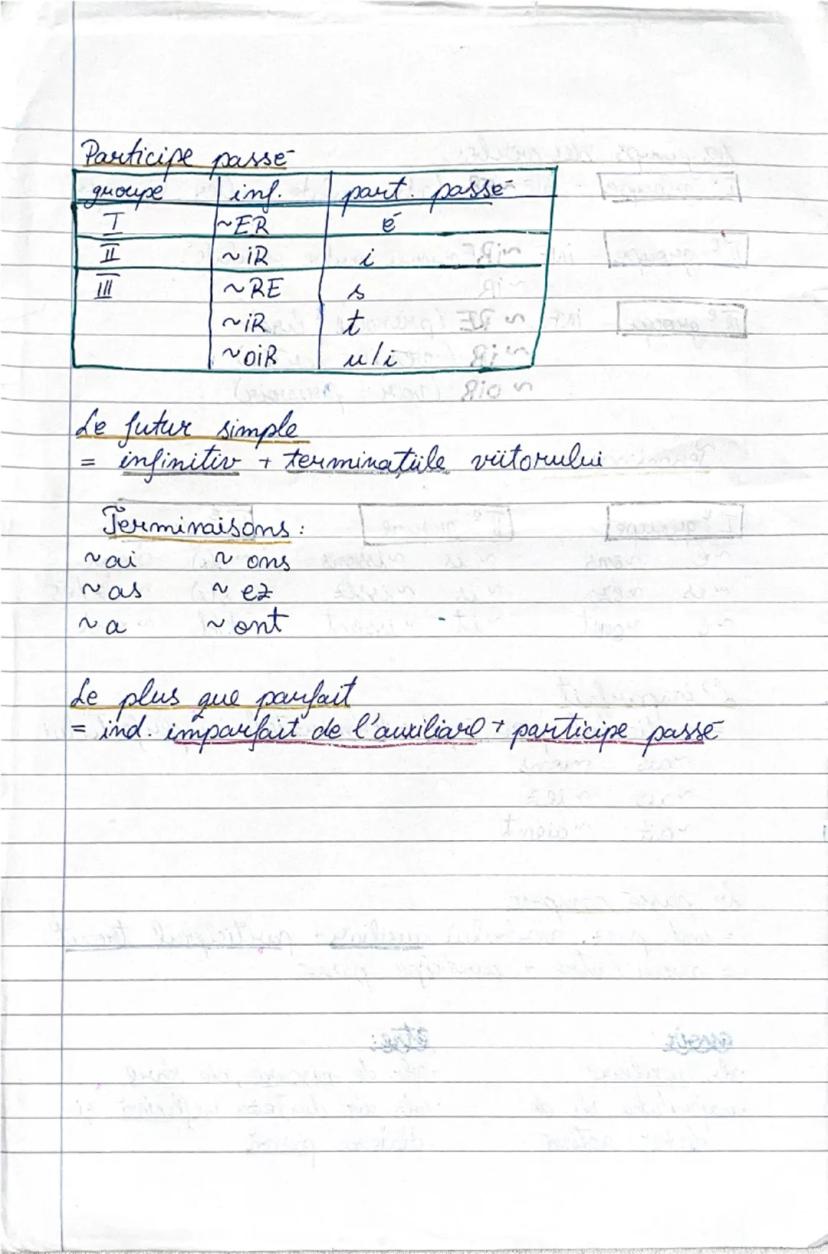 Participe passé
groupe inf. part. passé
I ~ER é
II ~iR i
III ~RE s
~iR t
~oiR u/i
Le futur simple
= infinitiv + terminațiile viitorului
Terminaisons:
~ai ~ons
~as ~ez
~a ~ont
Le plus que parfait
= ind. imparfait de l'auxiliare + participe passé